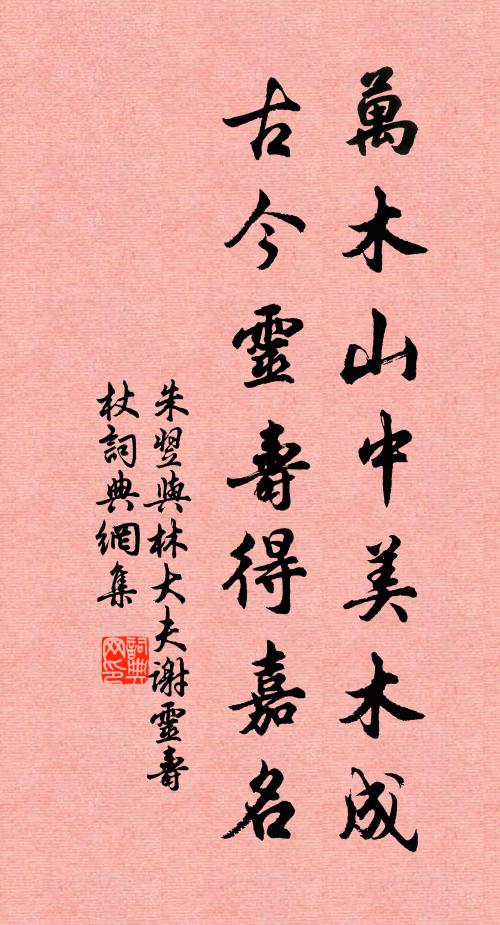 萬木山中美木成
古今靈壽得嘉名
朱翌與林大夫謝靈壽
杖詞典網集
詞典網印